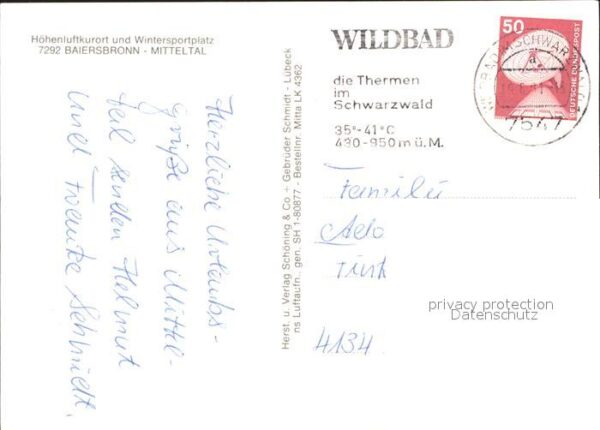 Höhenluftkurort und Wintersportplatz
7292 BAIERSBRONN - MITTELTAL
Herzliche Urlaubs-
grüße aus Mittel-
tal senden Helmut
und Frauke Schmidt.
Herst. u. Verlag Schöning & Co + Gebrüder Schmidt - Lübeck
ns Luftaufn., gen. SH 1-80877 - Bestellnr. Mitta LK 4362
WILDBAD
die Thermen
im
Schwarzwald
35°-41°C
430-950m ü.M.
50
DEUTSCHE BUNDESPOST
7547
Familie
Ado
Tink
4134
privacy protection
Datenschutz